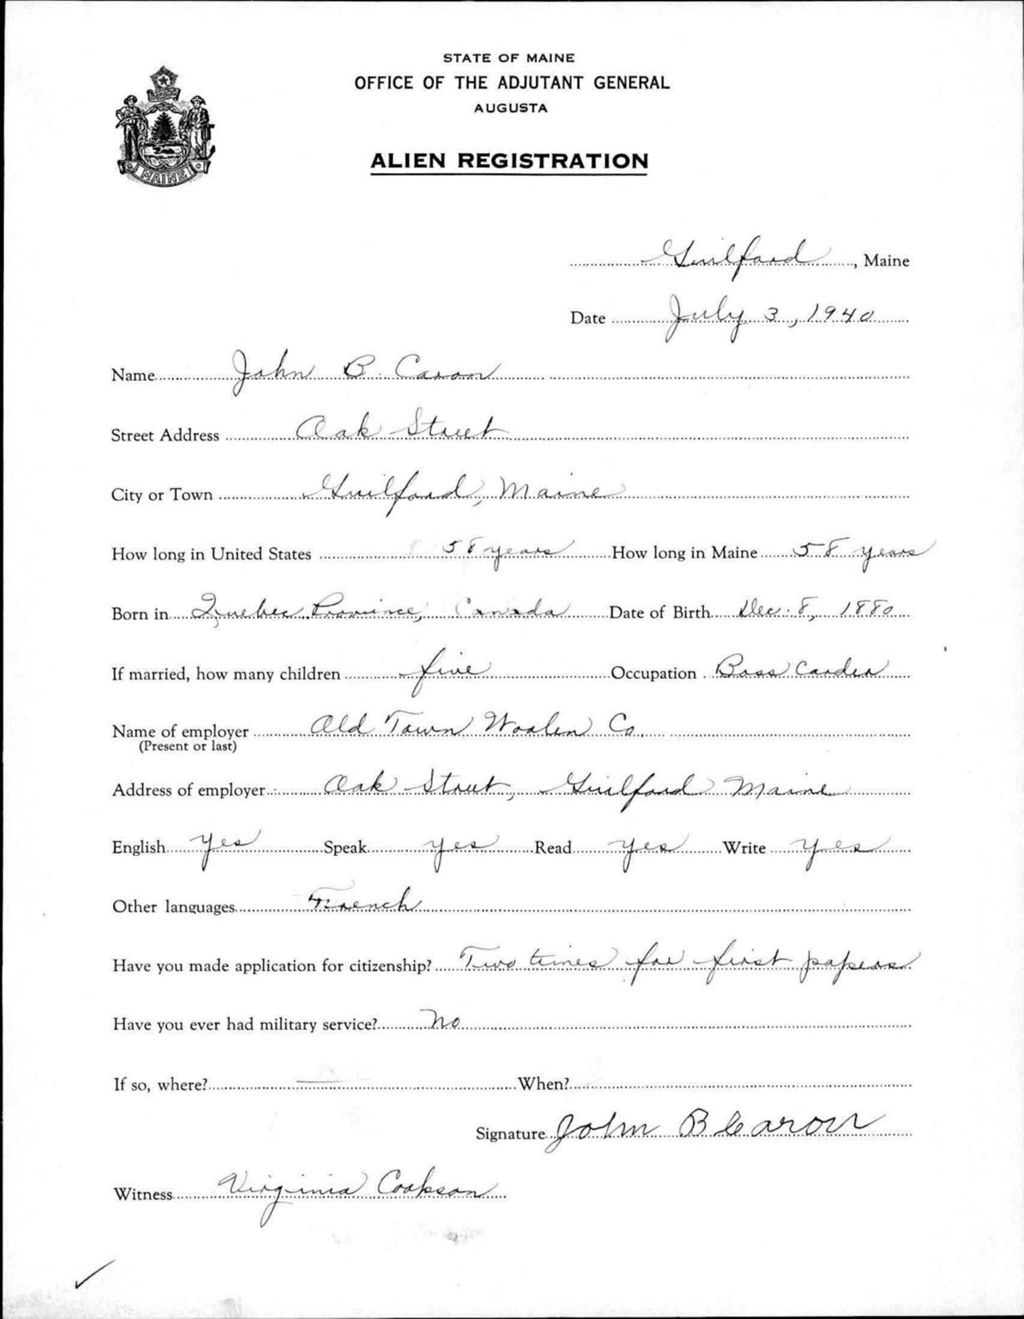 STATE OF MAINE
OFFICE OF THE ADJUTANT GENERAL
AUGUSTA
MAINE
ALIEN REGISTRATION
Guilford, Maine
Date July 3, 1940
Name John B. Caron
Street Address Oak Street
City or Town Guilford, Maine
How long in United States 58 years How long in Maine 58 years
Born in Quebec Province, Canada Date of Birth Dec. 8, 1880
If married, how many children five Occupation Boss Carder
Name of employer Old Town Woolen Co.
(Present or last)
Address of employer Oak Street, Guilford Maine
English Yes Speak yes Read yes Write yes
Other languages French
Have you made application for citizenship? Two times for first papers
Have you ever had military service? No
If so, where? — When?
Signature John B Caron
Witness Virginia Cookson